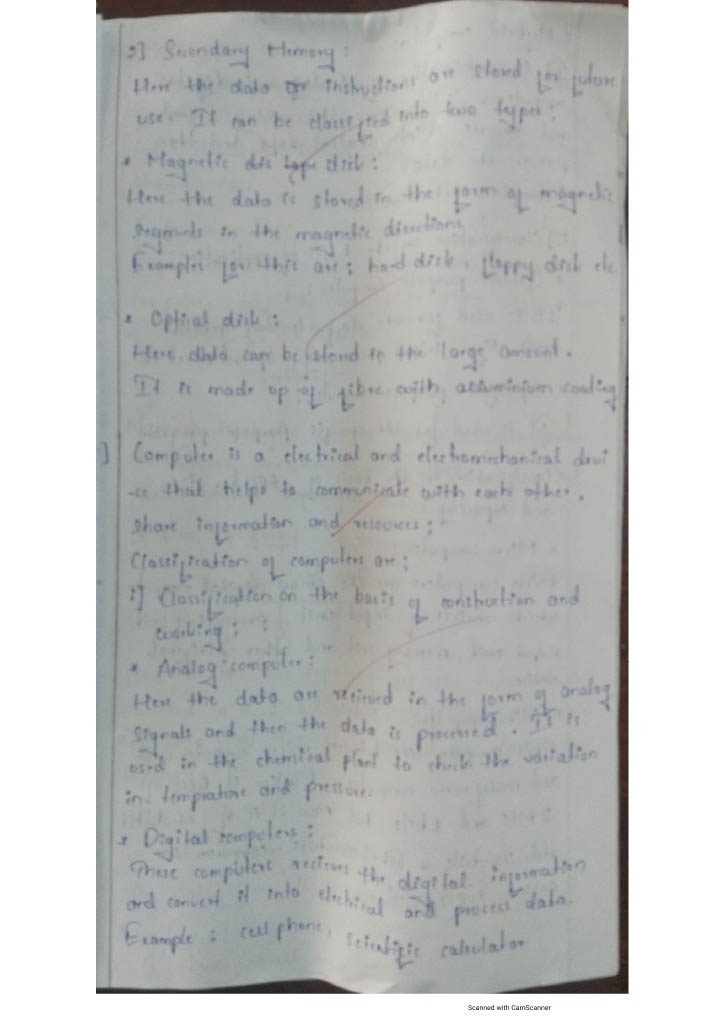 2] Secondary Memory :
Here the data or instructions are stored for future
use. It can be classified into two types :
* Magnetic dis tape disk :
Here the data is stored in the form of magnetic
segments in the magnetic directions
Examples for this are ; hard disk, floppy disk etc
* Optical disk :
Here data can be stored in the large amount.
It is made up of fibre with alluminium coating
] Computer is a electrical and electromechanical devi
-ce that helps to communicate with each other,
share information and resources ;
Classification of computers are ;
i] Classification on the basis of construction and
working ;
* Analog computer :
Here the data are recieved in the form of analog
signals and then the data is processed. It is
used in the chemical plant to check the variation
in temprature and pressure.
* Digital computers :
These computers recieves the digital information
and convert it into electrical and process data.
Example : cell phone, scientific calculator
Scanned with CamScanner